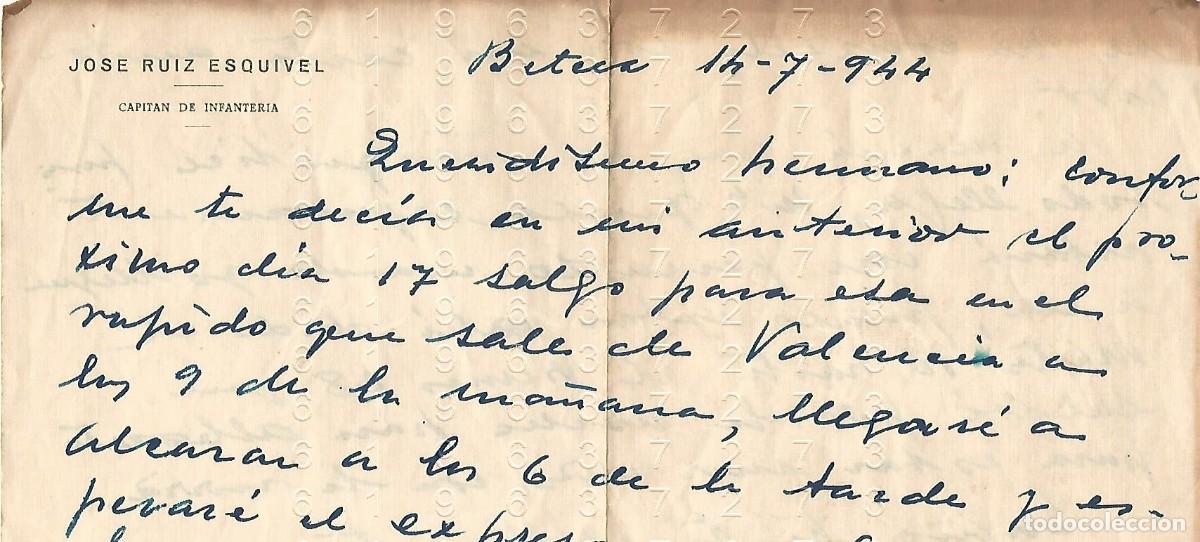 JOSE RUIZ ESQUIVEL
CAPITAN DE INFANTERIA
Betera 14-7-944
Queridisimo hermano; confor
me te decía en mi anterior el pro-
ximo día 17 salgo para esa en el
rapido que sale de Valencia a
las 9 de la mañana, llegaré a
Alcazar a las 6 de la tarde y es-
peraré el expreso
todocoleccion